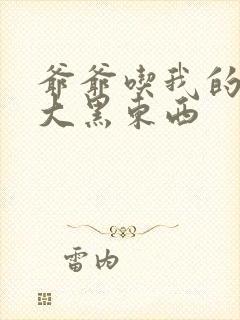 爷爷喫我的
大黑东西
雷内